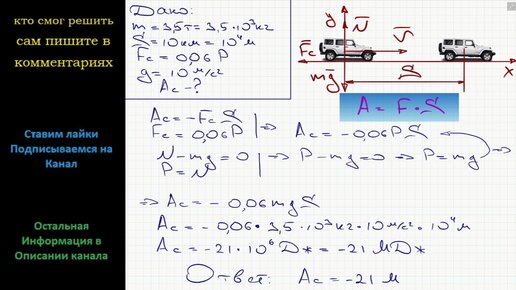 кто смог решить
сам пишите в
комментариях
Ставим лайки
Подписываемся на
Канал
Остальная
Информация в
Описании канала
Дано:
m = 3,5т = 3,5·10³кг
S = 10км = 10⁴м
Fc = 0,06 P
g = 10 м/с²
Ac - ?
y N S
Fc
mg S x
A = F·S
Ac = -Fc S
Fc = 0,06P |⇒ Ac = -0,06 P S
N - mg = 0 |⇒ P - mg = 0 ⇒ P = mg
P = N
⇒ Ac = - 0,06 mg S
Ac = - 0,06 · 3,5 · 10³кг · 10 м/с² · 10⁴ м
Ac = - 21 · 10⁶ Дж = - 21 МДж
Ответ: Ac = - 21 М